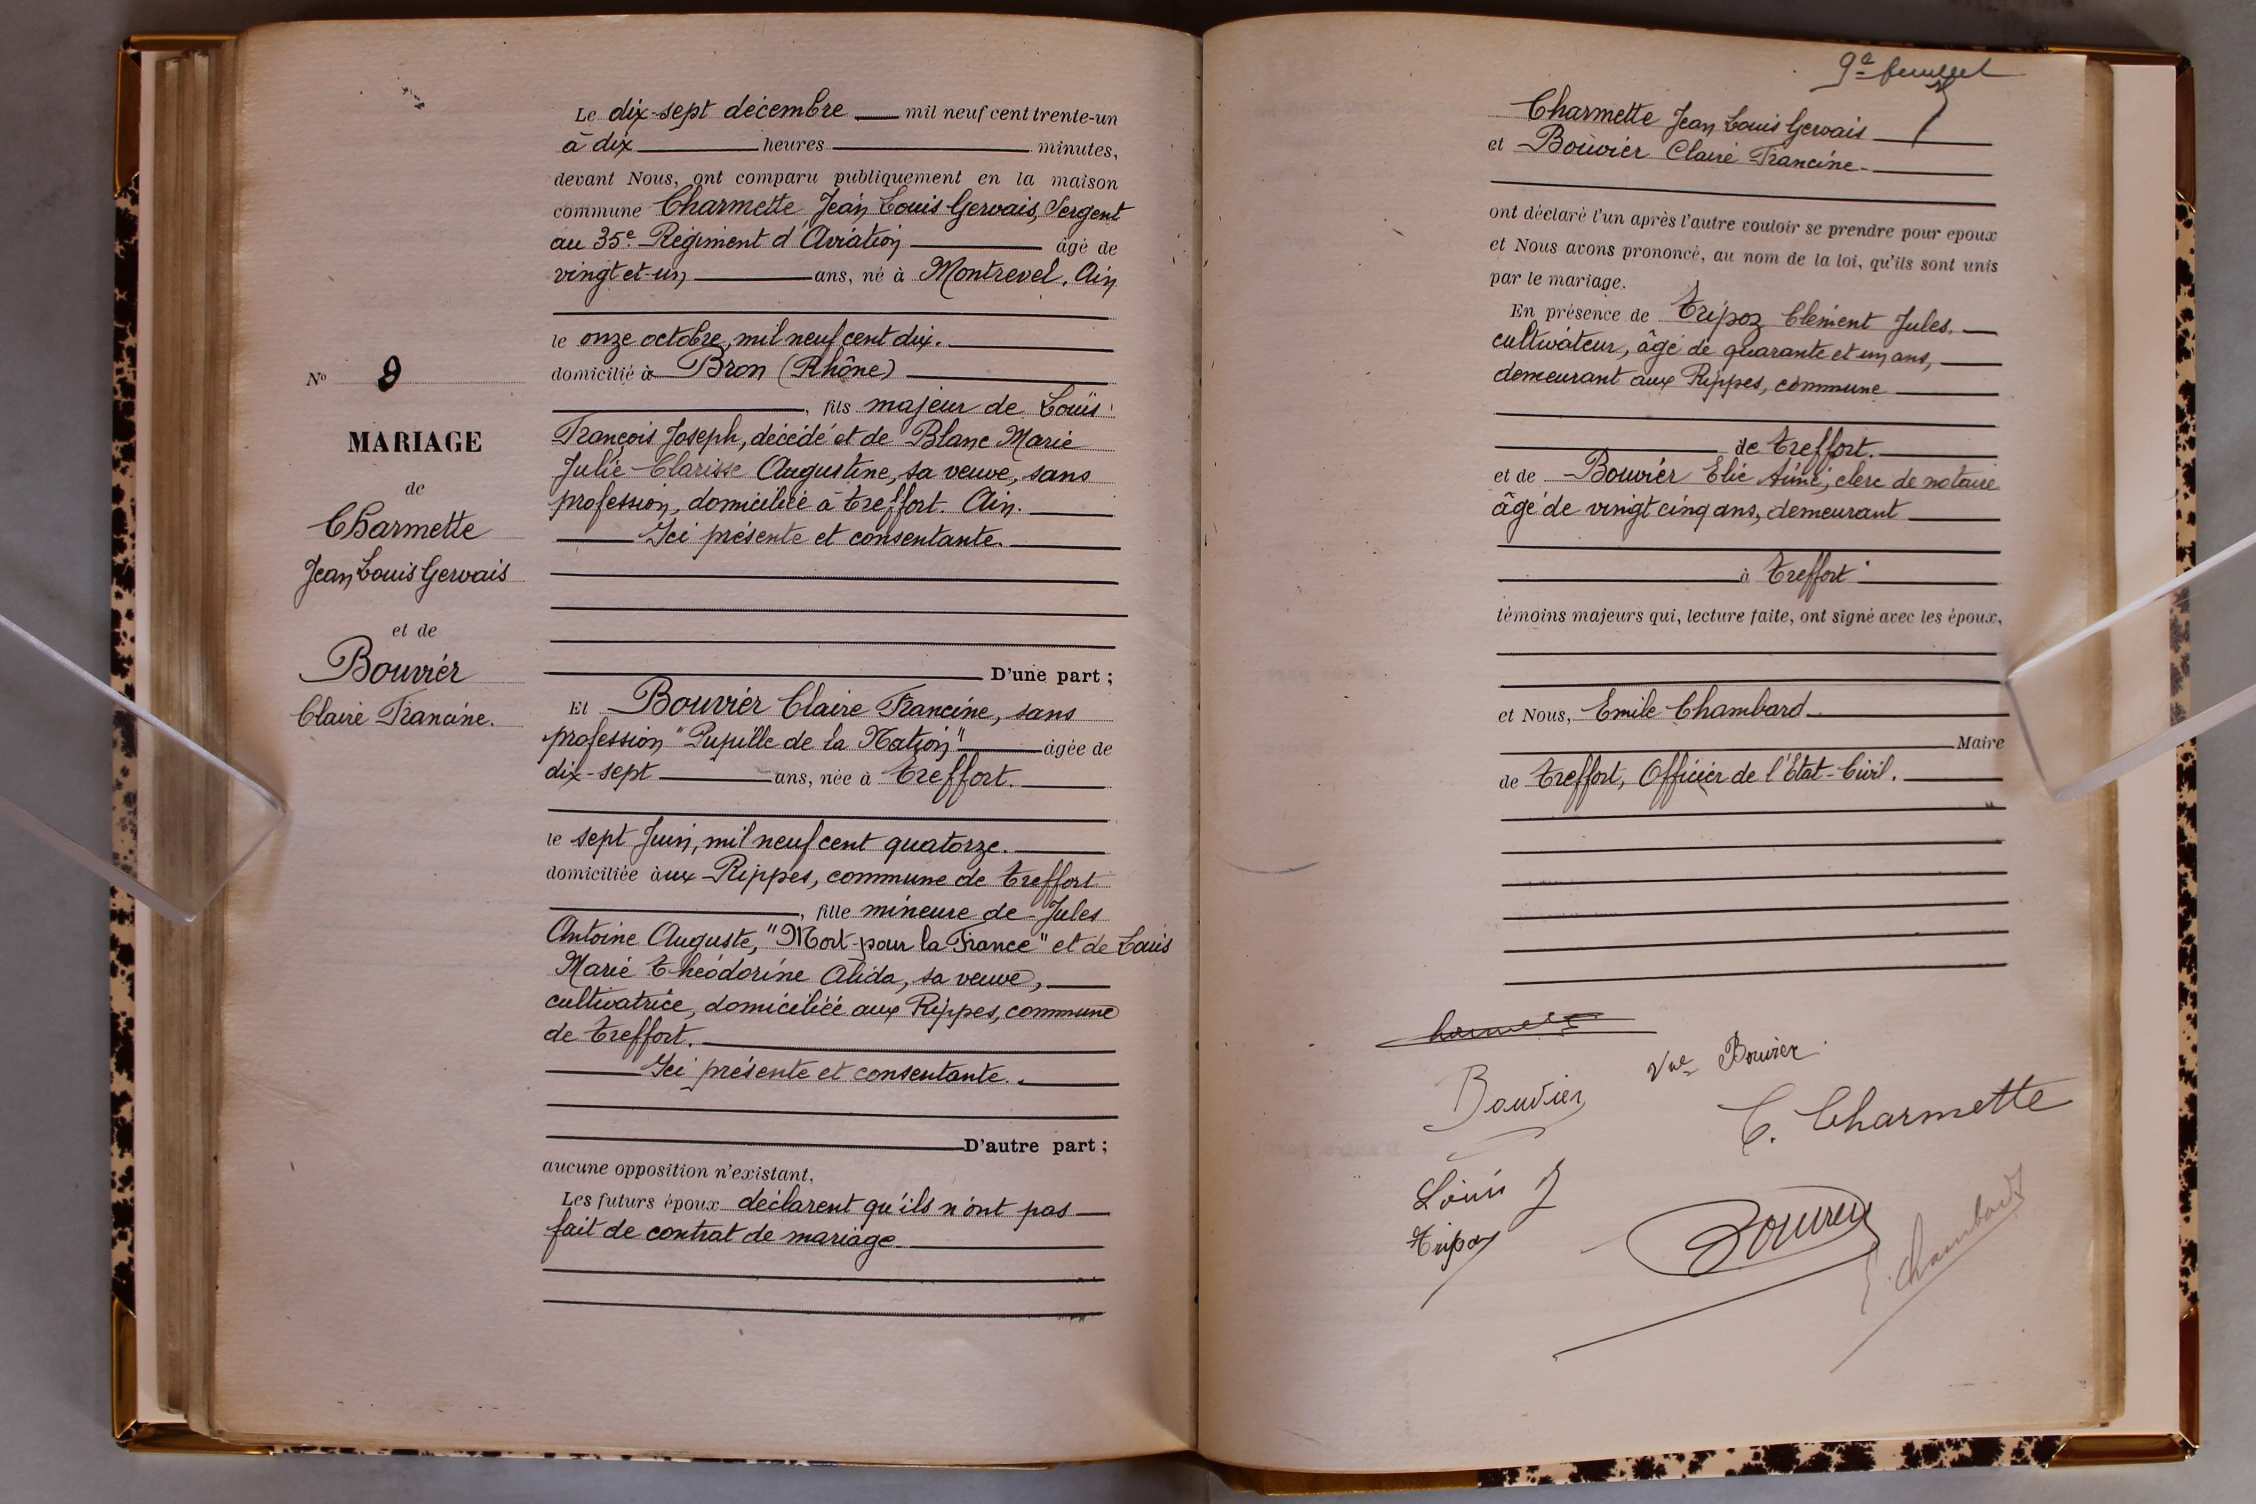 Le dix-sept décembre mil neuf cent trente-un
à dix heures minutes,
devant Nous, ont comparu publiquement en la maison
commune Charmette Jean Louis Gervais, Sergent
au 35e Régiment d'Aviation âgé de
vingt et un ans, né à Montrevel. Ain
le onze octobre, mil neuf cent dix.
domicilié à Bron (Rhône)
, fils majeur de Louis
François Joseph, décédé et de Blanc Marie
Julie Clarisse Augustine, sa veuve, sans
profession, domiciliée à Treffort. Ain.
Ici présente et consentante.
D'une part ;
Et Bouvier Claire Francine, sans
profession "Pupille de la Nation" âgée de
dix-sept ans, née à Treffort.
le sept Juin, mil neuf cent quatorze.
domiciliée aux Rippes, commune de Treffort
, fille mineure de Jules
Antoine Auguste, "Mort pour la France" et de Louis
Marie Théodorine Alida, sa veuve,
cultivatrice, domiciliée aux Rippes, commune
de Treffort.
Ici présente et consentante.
D'autre part ;
aucune opposition n'existant,
Les futurs époux déclarent qu'ils n'ont pas
fait de contrat de mariage
No 9
MARIAGE
de
Charmette
Jean Louis Gervais
et de
Bouvier
Claire Francine.
9e feuillet
Charmette Jean Louis Gervais
et Bouvier Claire Francine.
ont déclaré l'un après l'autre vouloir se prendre pour epoux
et Nous avons prononcé, au nom de la loi, qu'ils sont unis
par le mariage.
En présence de Tripoz Clément Jules.
cultivateur, âgé de quarante et un ans,
demeurant aux Rippes, commune
de Treffort.
et de Bouvier Elie Aimé, clerc de notaire
âgé de vingt cinq ans, demeurant
à Treffort
témoins majeurs qui, lecture faite, ont signé avec les époux,
et Nous, Emile Chambard
Maire
de Treffort, Officier de l'Etat-Civil.
Vve Bouvier
Bouvier
C. Charmette
Louis J
Tripoz
Bouvier
E. Chambard